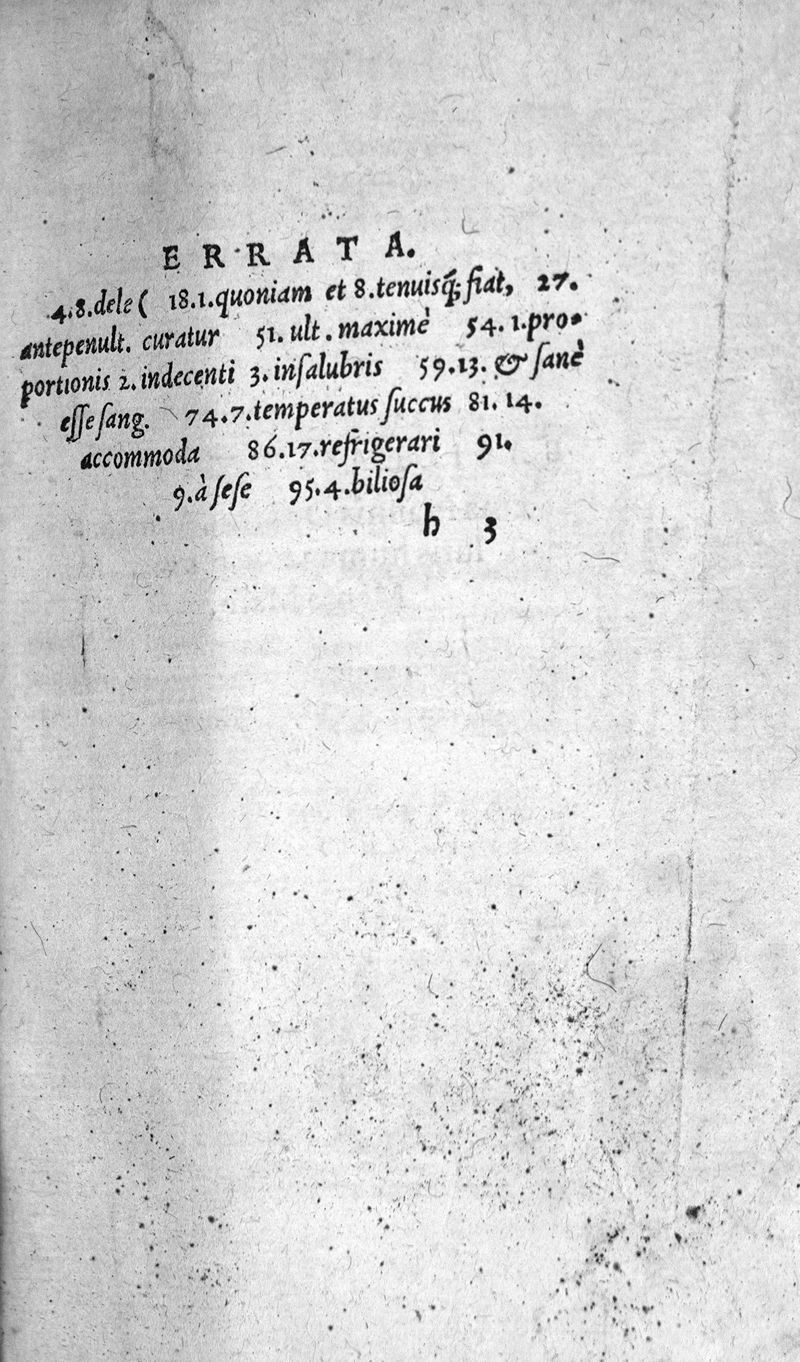 ERRATA.
4.8.dele ( 18.1.quoniam et 8.tenuisq́;fiat, 27.
antepenult. curatur 51. ult. maximè 54. 1.pro-
portionis 2. indecenti 3. inſalubris 59.13. & ſanè
eſſe ſang. 74.7.temperatus ſuccus 81. 14.
accommoda 86.17.refrigerari 91.
9.à ſeſe 95.4.bilioſa
h 3